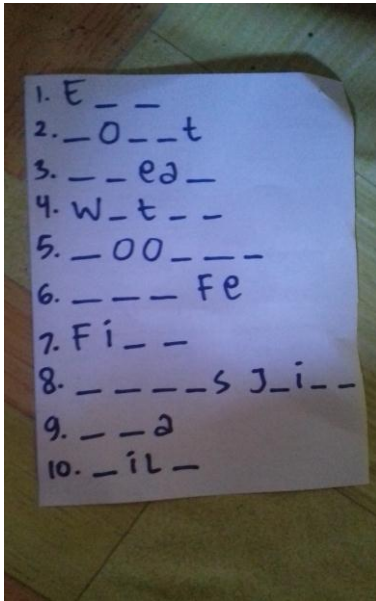 1. E _ _
2. _ O _ _ t
3. _ _ ea _
4. W _ t _ _
5. _ OO _ _ _
6. _ _ _ Fe
7. Fi _ _
8. _ _ _ _ s J _ i _ _
9. _ _ a
10. _ iL _